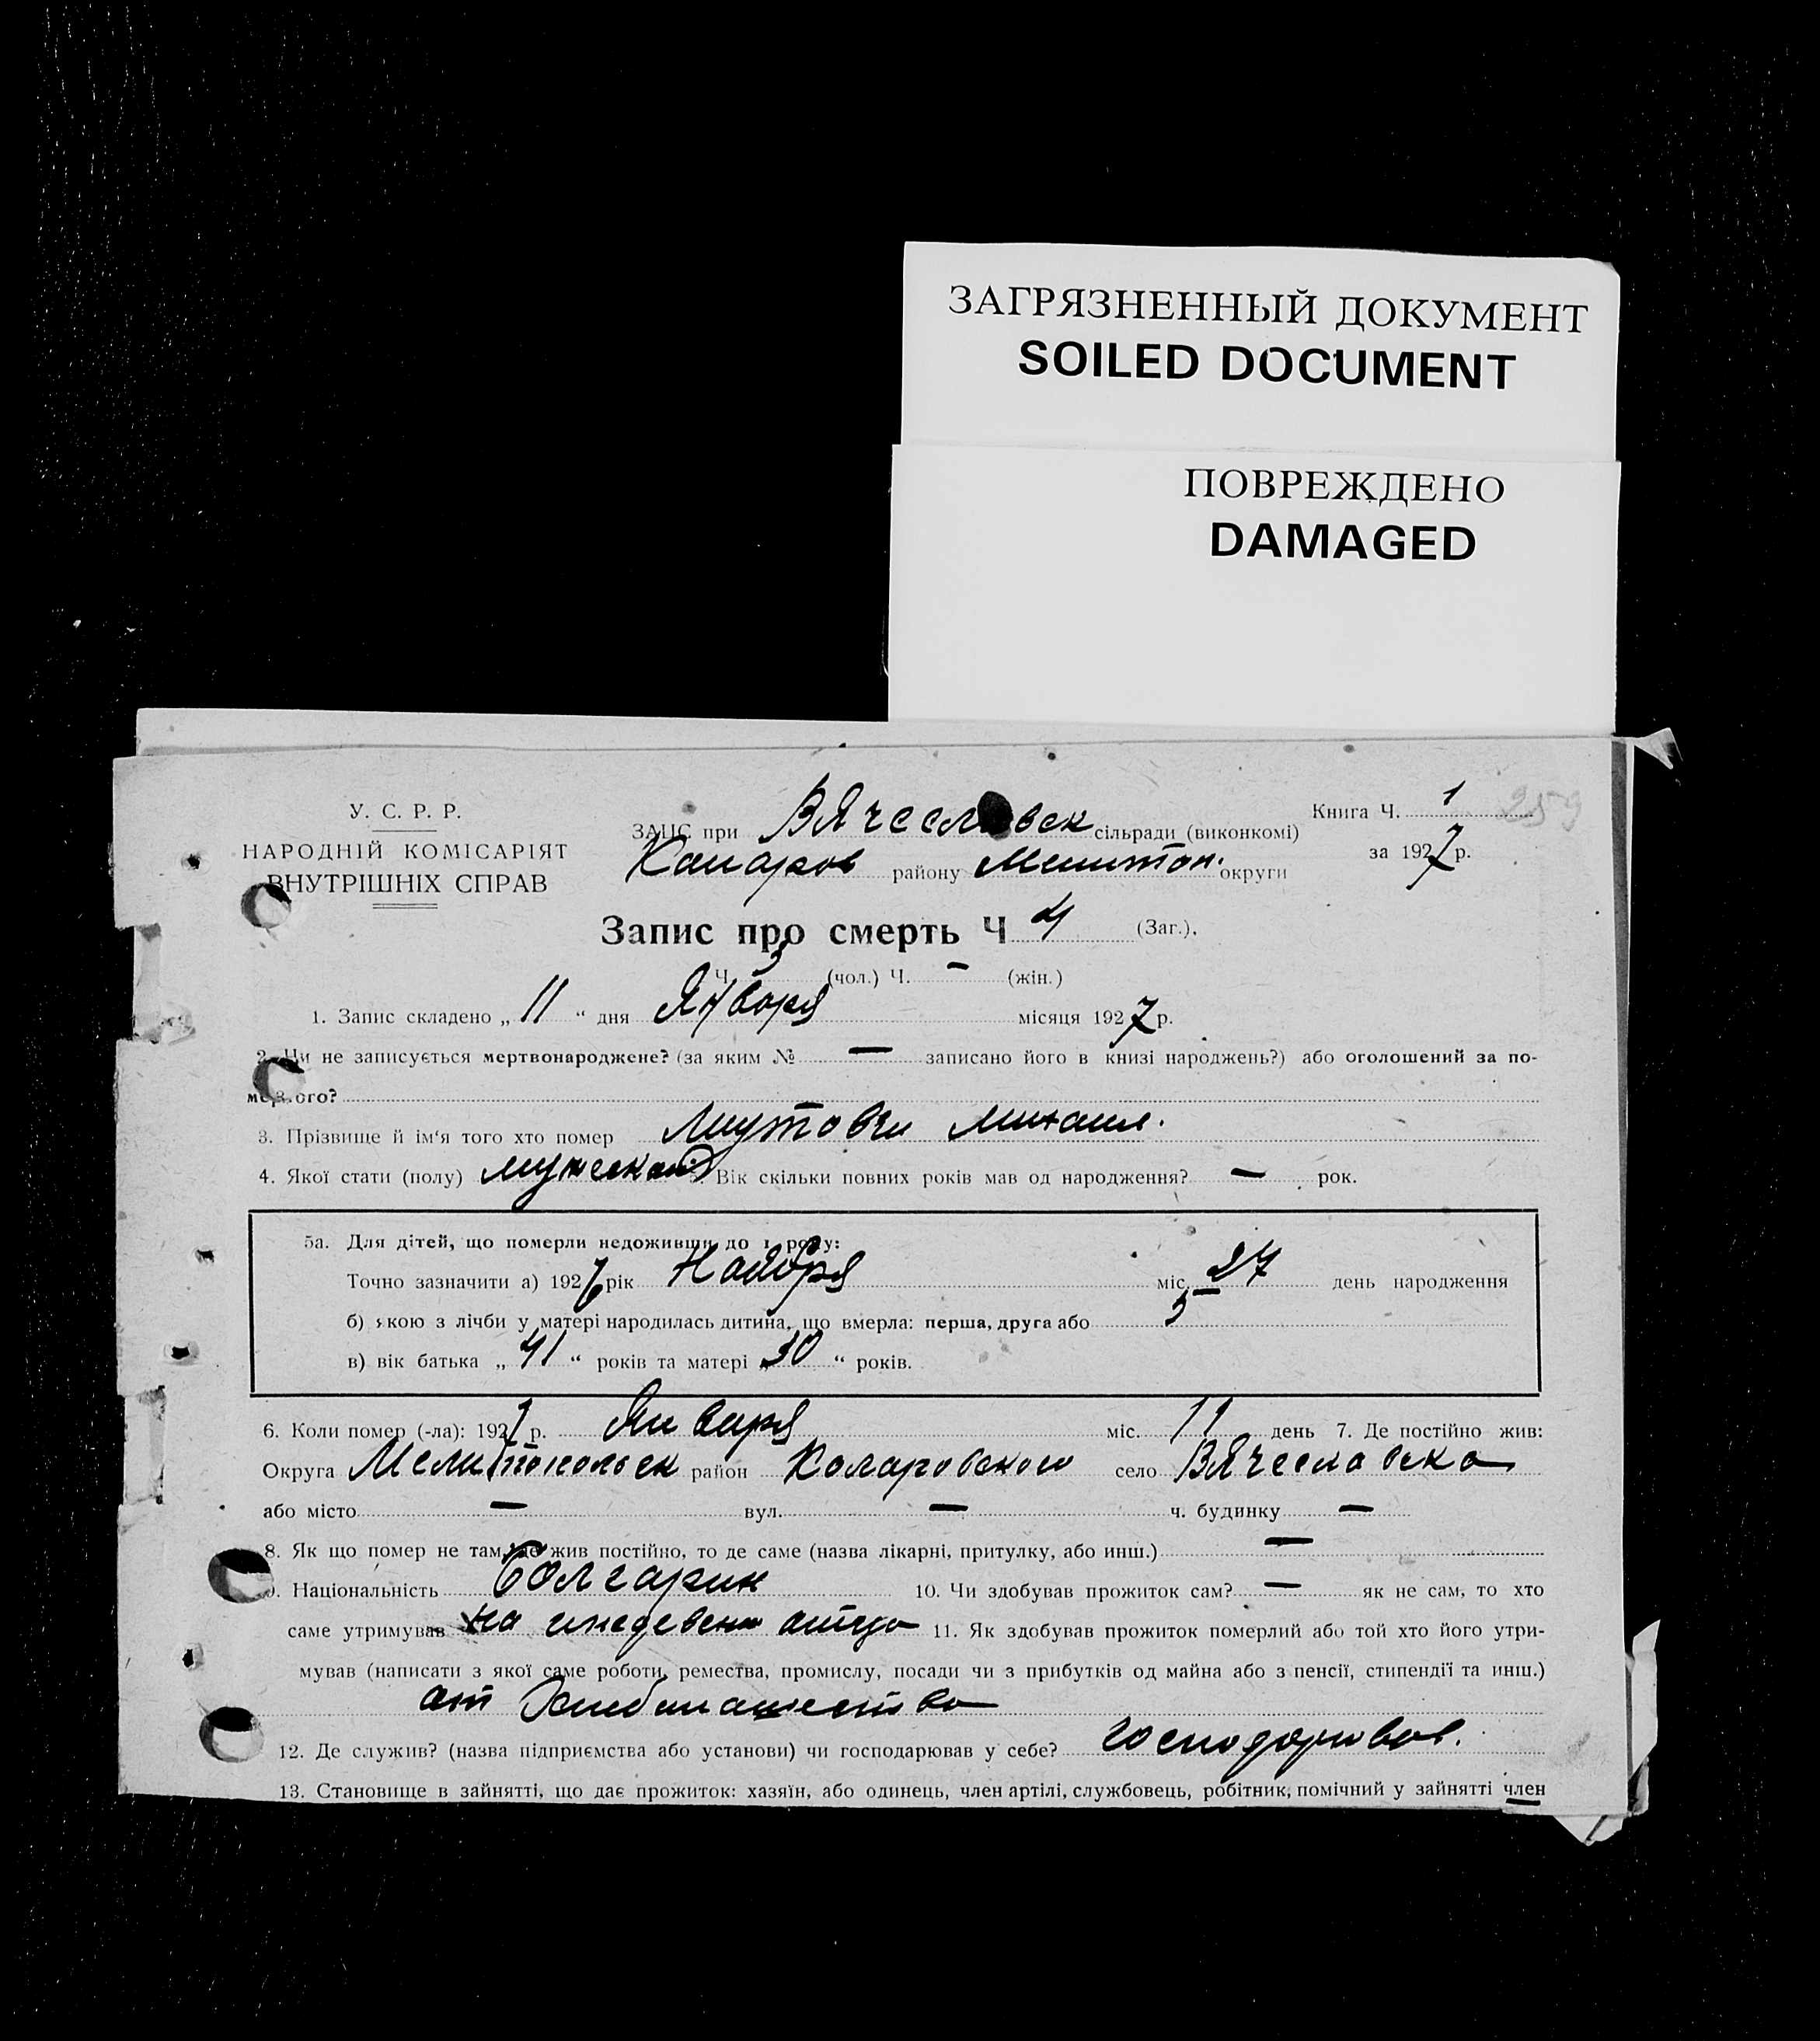 ЗАГРЯЗНЕННЫЙ ДОКУМЕНТ
SOILED DOCUMENT
ПОВРЕЖДЕНО
DAMAGED
У. С. Р. Р.
НАРОДНІЙ КОМІСАРІЯТ
ВНУТРІШНІХ СПРАВ
ЗАПС при Вячесловск сільради (виконкомі)
Коларов району Мелитоп. округи
Книга Ч. 1
259
за 1927 р.
Запис про смерть Ч 4 (Заг.).
Ч. 3 (чол.) Ч. — (жін.)
1. Запис складено „ 11 “ дня Января місяця 1927 р.
2. Чи не записується мертвонароджене? (за яким № — записано його в книзі народжень?) або оголошений за по-
мерлого?
3. Прізвище й ім‘я того хто помер Михаил.
4. Якої стати (полу) мужской 5. Вік скільки повних років мав од народження? — рок.
5а. Для дітей, що померли недоживши до 1 року:
Точно зазначити а) 1926 рік Ноября міс. 27 день народження
б) якою з лічби у матері народилась дитина, що вмерла: перша, друга або 5
в) вік батька „ 41 “ років та матері „ 30 “ років.
6. Коли помер (-ла): 1927 р. Января міс. 11 день 7. Де постійно жив:
Округа Мелитопольск район Коларовского село Вячесловка
або місто — вул. — ч. будинку —
8. Як що помер не там, де жив постійно, то де саме (назва лікарні, притулку, або инш.) —
9. Національність Болгарин 10. Чи здобував прожиток сам? — як не сам, то хто
саме утримував на иждевени отца 11. Як здобував прожиток померлий або той хто його утри-
мував (написати з якої саме роботи, ремества, промислу, посади чи з прибутків од майна або з пенсії, стипендії та инш.)
от Хлебопашества
12. Де служив? (назва підприємства або установи) чи господарював у себе? господоровал.
13. Становище в зайнятті, що дає прожиток: хазяїн, або одинець, член артілі, службовець, робітник, помічний у зайнятті член